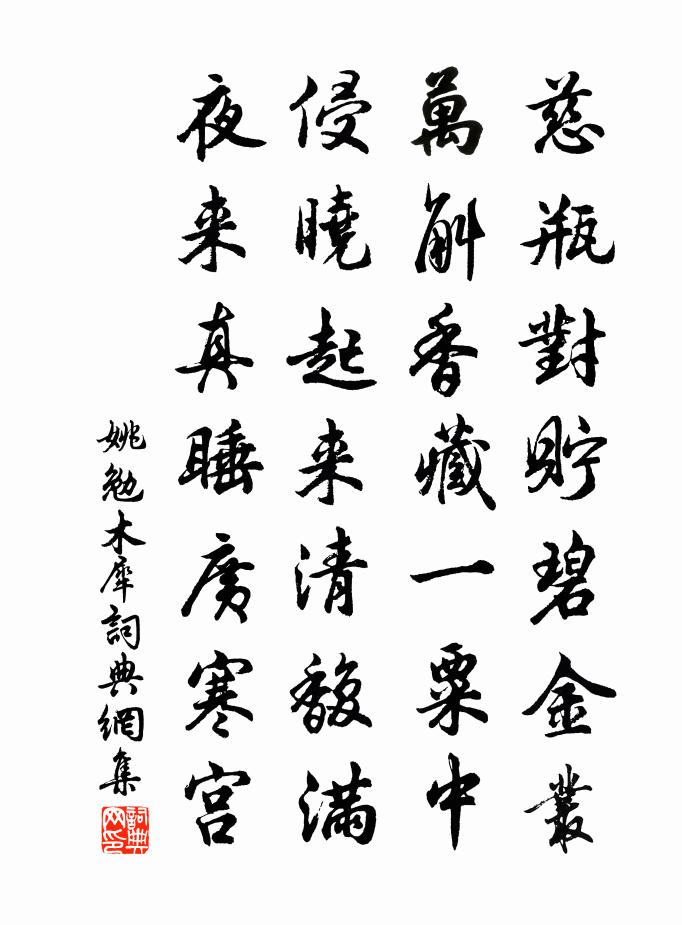 慈瓶對貯碧金叢
萬斛香藏一粟中
侵曉起来清馥滿
夜来真睡廣寒宮
姚勉木犀詞典網集
詞典网印